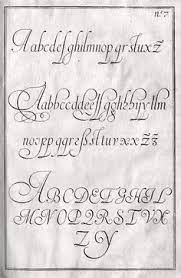 nº 7
Aabcdefghilmnopqrstuxz
Aabbccddeeffgghhijyllm
noppqqrefstturvxxzz
ABCDEFGHIL
MNOPQRSTVX
ZY